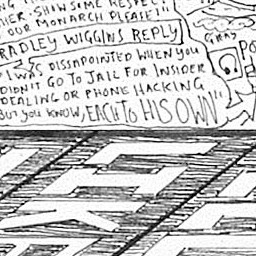 HER. SHOW SOME RESPECT
OUR MONARCH PLEASE!!
RADLEY WIGGINS REPLY
I WAS DISSAPOINTED WHEN YOU
DIDN'T GO TO JAIL FOR INSIDER
DEALING OR PHONE HACKING
BUT YOU KNOW, EACH TO HIS OWN"
GRAY
PO